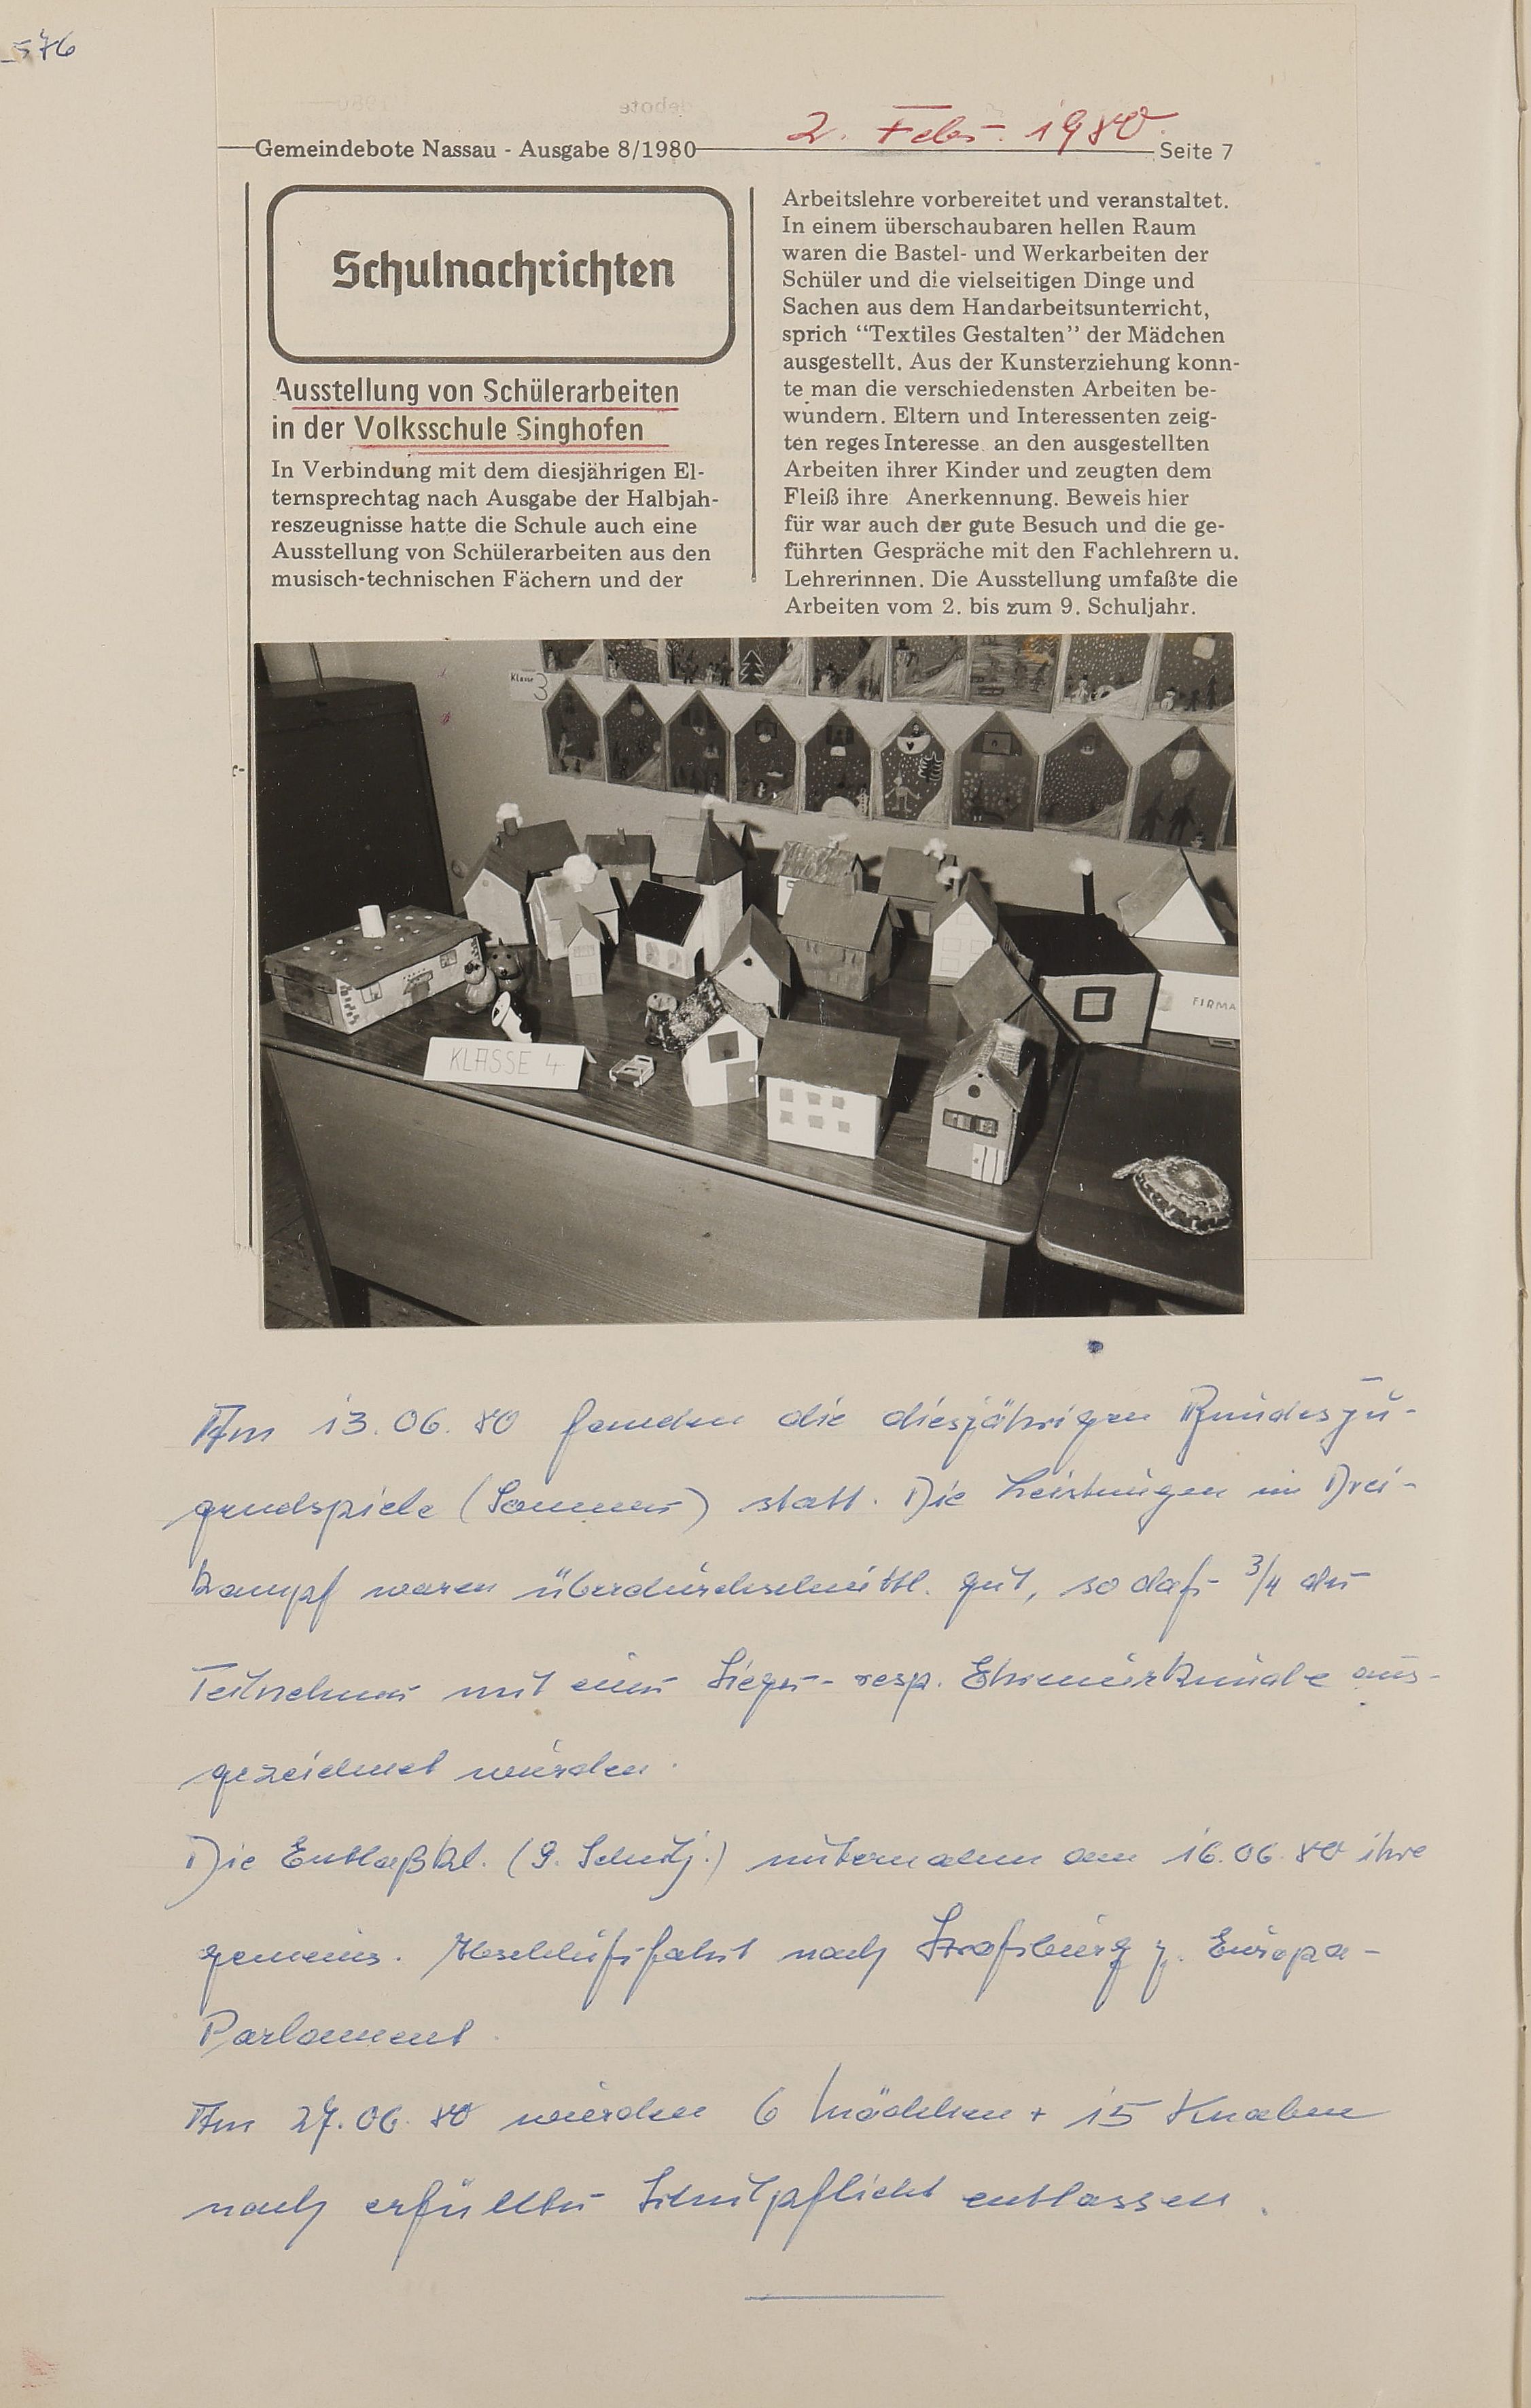 576
2. Febr. 1980.
Gemeindebote Nassau - Ausgabe 8/1980
Seite 7
Schulnachrichten
Ausstellung von Schülerarbeiten
in der Volksschule Singhofen
In Verbindung mit dem diesjährigen El-
ternsprechtag nach Ausgabe der Halbjah-
reszeugnisse hatte die Schule auch eine
Ausstellung von Schülerarbeiten aus den
musisch-technischen Fächern und der
Arbeitslehre vorbereitet und veranstaltet.
In einem überschaubaren hellen Raum
waren die Bastel- und Werkarbeiten der
Schüler und die vielseitigen Dinge und
Sachen aus dem Handarbeitsunterricht,
sprich "Textiles Gestalten" der Mädchen
ausgestellt. Aus der Kunsterziehung konn-
te man die verschiedensten Arbeiten be-
wundern. Eltern und Interessenten zeig-
ten reges Interesse an den ausgestellten
Arbeiten ihrer Kinder und zeugten dem
Fleiß ihre Anerkennung. Beweis hier
für war auch der gute Besuch und die ge-
führten Gespräche mit den Fachlehrern u.
Lehrerinnen. Die Ausstellung umfaßte die
Arbeiten vom 2. bis zum 9. Schuljahr.
Klasse 3
FIRMA
KLASSE 4
Am 13.06.80 fanden die diesjährigen Bundesju-
gendspiele (Sommer) statt. Die Leistungen im Drei-
kampf waren überdurchschnittl. gut, so daß 3/4 der
Teilnehmer mit einer Sieger- resp. Ehrenurkunde aus-
gezeichnet wurden.
Die Entlaßkl. (9. Schulj.) unternahm am 16.06.80 ihre
gemeins. Abschlußfahrt nach Straßburg z. Europa-
Parlament.
Am 27.06.80 wurden 6 Mädchen + 15 Knaben
nach erfüllter Schulpflicht entlassen.